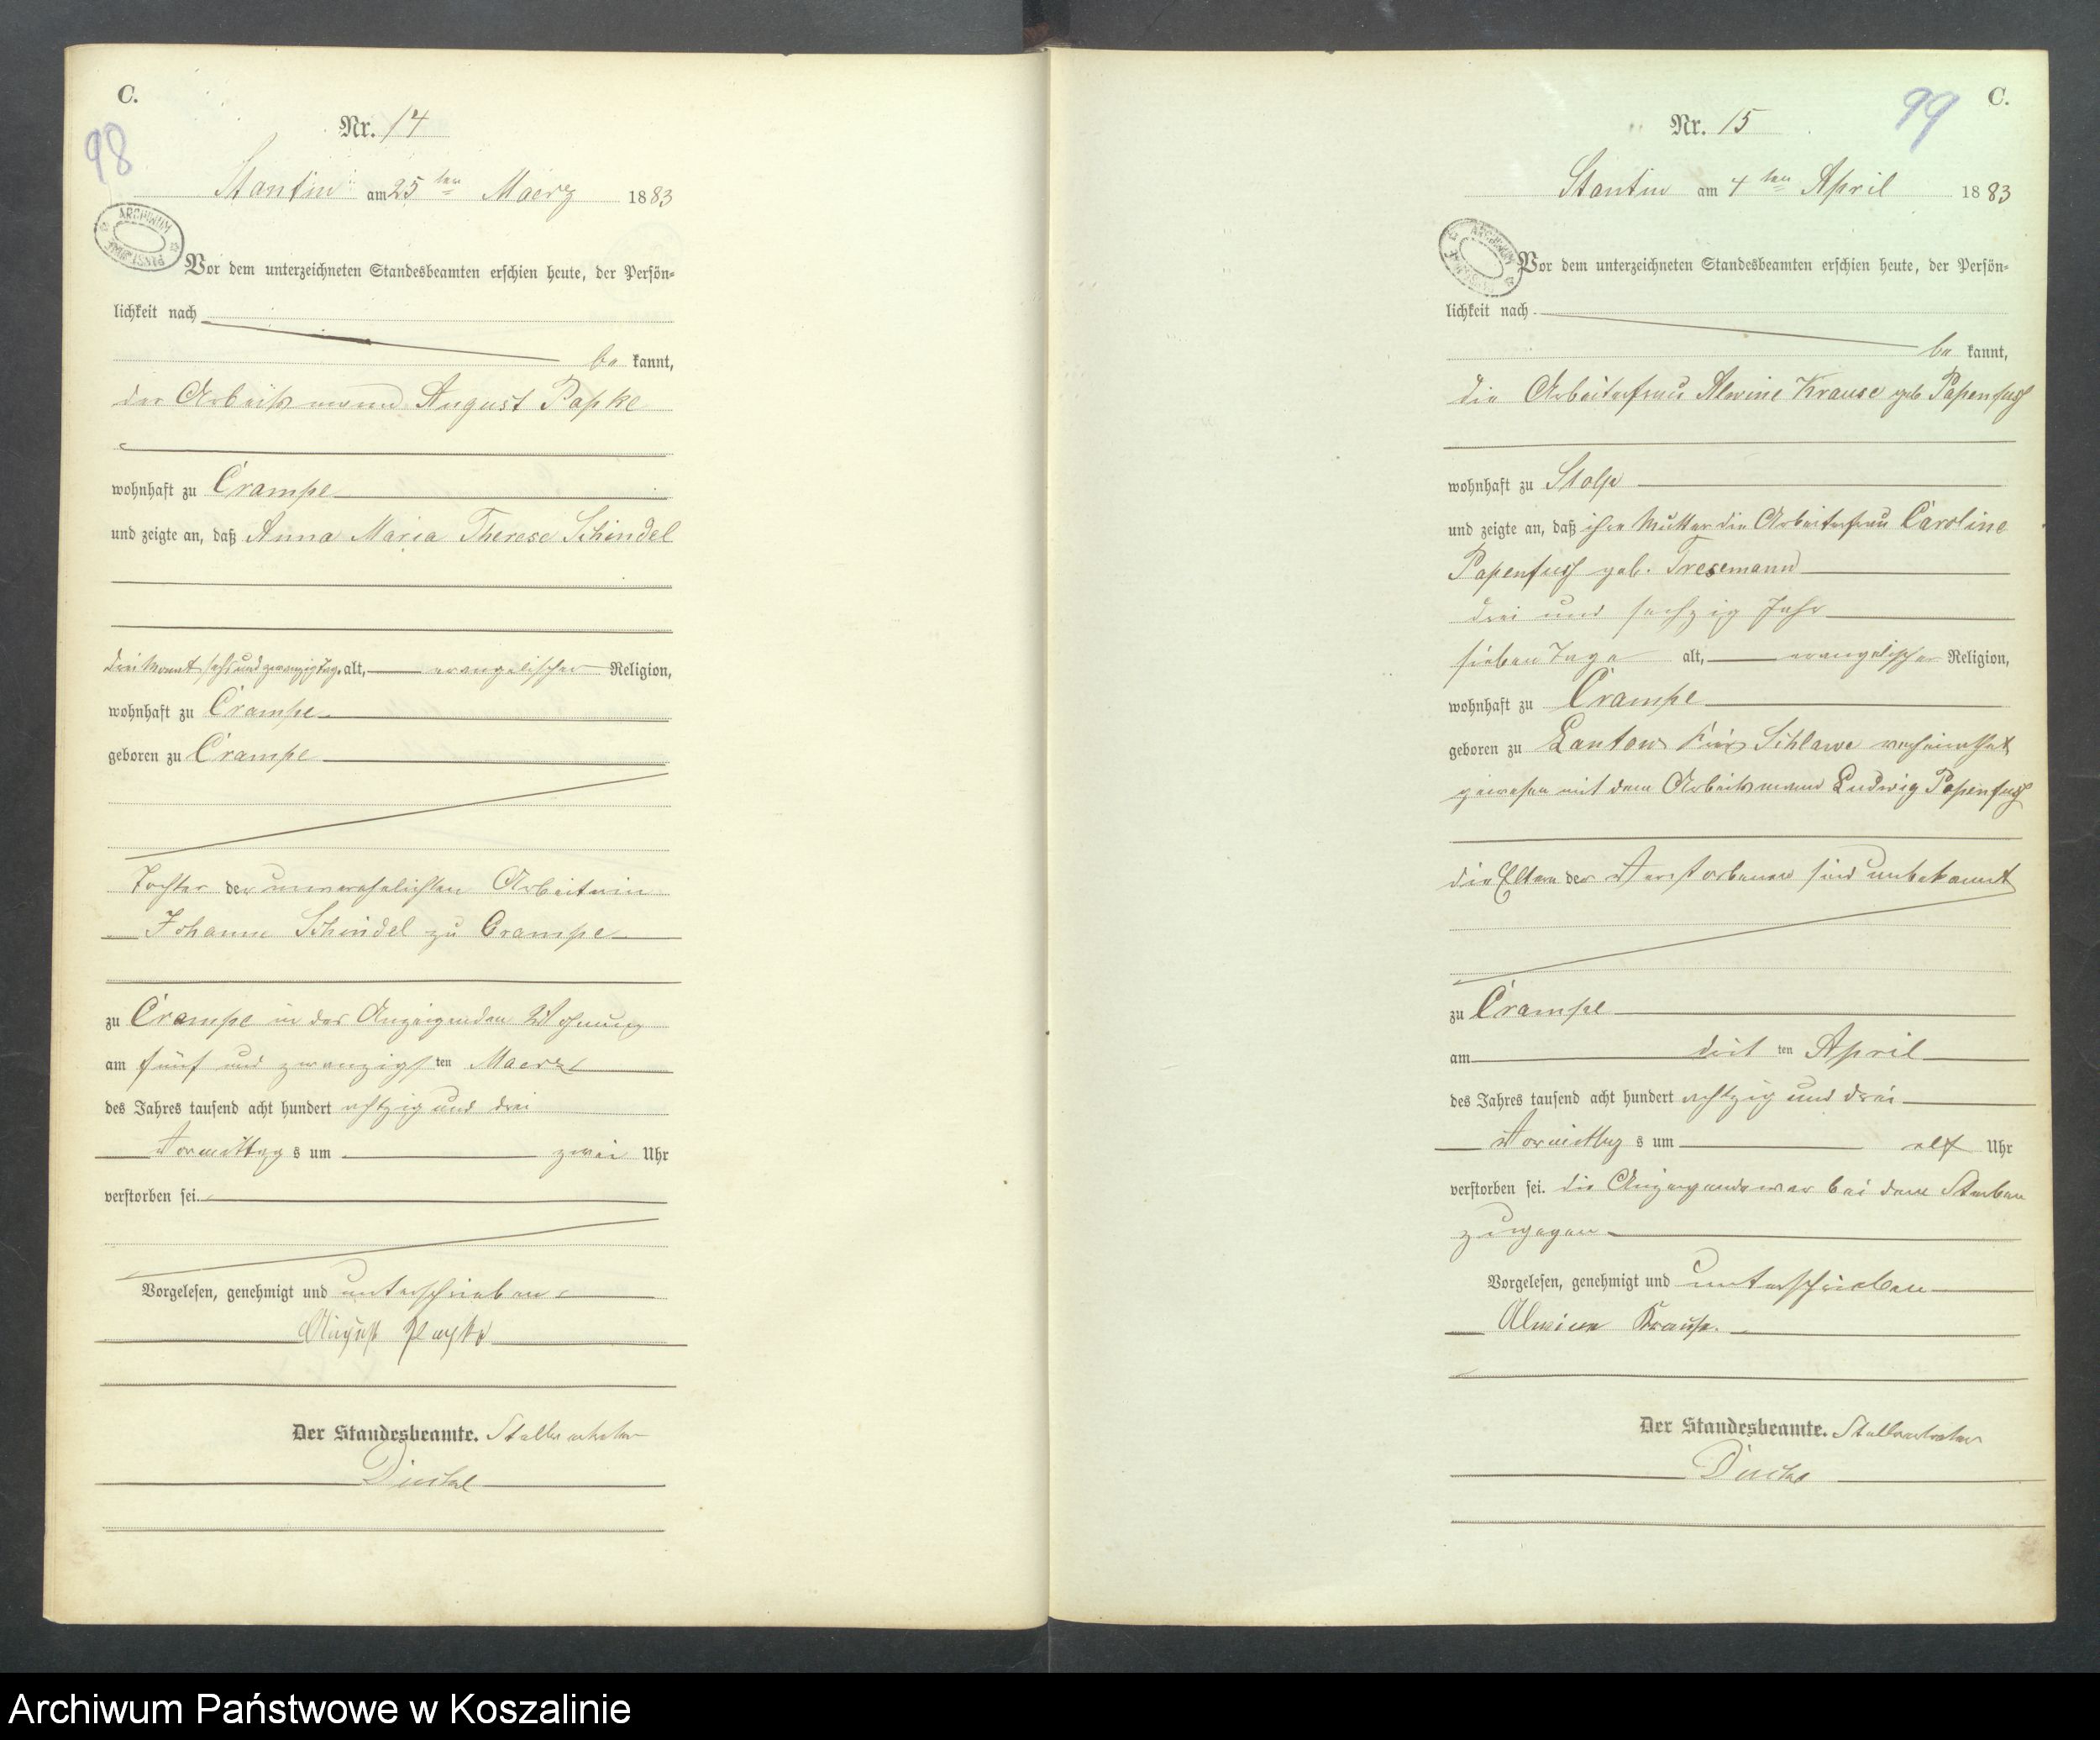 C.
98
Nr. 14
Stantin am 25 ten Maerz 1883
ARCHIWUM
Vor dem unterzeichneten Standesbeamten erschien heute, der Persön-
lichkeit nach
be kannt,
der Arbeitsmann August Papke
wohnhaft zu Crampe
und zeigte an, daß Anna Maria Therese Schindel
drei Monat sechs und zwanzig Tage alt, evangelischer Religion,
wohnhaft zu Crampe
geboren zu Crampe
Tochter der unverehelichten Arbeiterin
Johanne Schindel zu Crampe
zu Crampe in des Anzeigenden Wohnung
am fünf und zwanzigsten Maerz
des Jahres tausend acht hundert achtzig und drei
Vormittags um zwei Uhr
verstorben sei.
Vorgelesen, genehmigt und unterschrieben
August Papke
Der Standesbeamte. Stellvertreter
C.
99
Nr. 15
Stantin am 4 ten April 1883
ARCHIWUM
Vor dem unterzeichneten Standesbeamten erschien heute, der Persön-
lichkeit nach
be kannt,
die Arbeiterfrau Alwine Krause geb Papenfuß
wohnhaft zu Stolp
und zeigte an, daß ihre Mutter die Arbeiterfrau Caroline
Papenfuß geb. Tresemann
drei und sechzig Jahr
sieben Tage alt, evangelischer Religion,
wohnhaft zu Crampe
geboren zu Lantow Kreis Schlawe verheirathet
gewesen mit dem Arbeitsmann Ludwig Papenfuß
die Eltern der Verstorbenen sind unbekannt
zu Crampe
am dritten April
des Jahres tausend acht hundert achtzig und drei
Vormittags um elf Uhr
verstorben sei. die Anzeigende war bei dem Sterben
zugegen
Vorgelesen, genehmigt und unterschrieben
Alwine Krause.
Der Standesbeamte. Stellvertreter
Archiwum Państwowe w Koszalinie